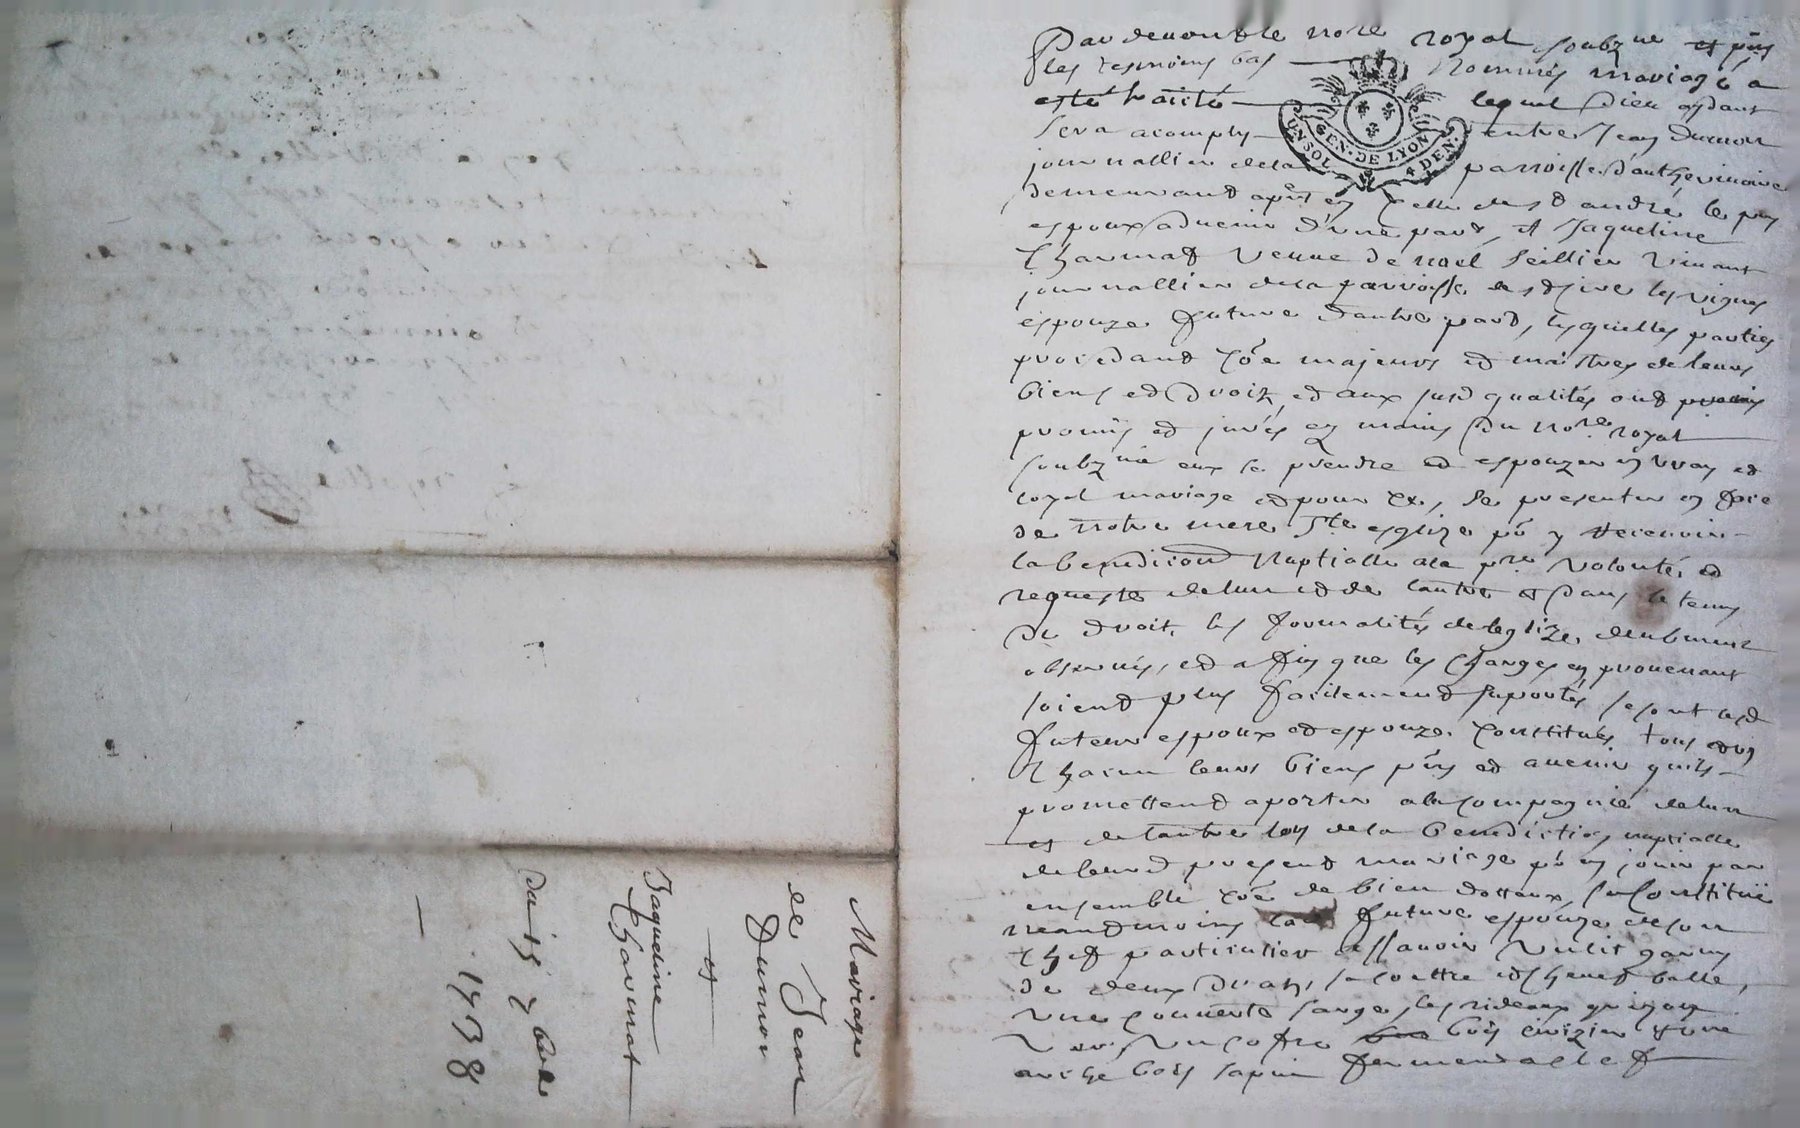 Pardevant le no.re royal soubz.né et
les tesmoins bas nommés mariage a
esté traité lequel Dieu aydant
sera acomply entre Jean Dumor
journallier de la parroisse
demeurand en celle de s.d andré le puy
espoux advenir d'une pard, et Jaqueline
Charmat veuve de noel seillier vivant
journallier de la parroisse les vignes
espouze future d'autre pard, lesquelles parties
procedand co͞e majeurs ed maistres de leurs
biens ed droitz, ed aux susd qualités ond
promis ed jurés en mains du no.re royal
soubz.né eux se prendre ed espouzer en vray ed
loyal mariage ed pour ce, se presenter en face
de notre mere s.te esglize po͞ y recevoir
la benedicon nuptialle a la p.re volonté ed
requeste de lun ed de lautre et dans le tems
de droit, les formalités de leglize, deubment
observés, ed affin que les charges en provenant
soiend plus facilemend suportés se sont lesd
futeur espoux ed espouze constitués tous
chacun leurs biens p͞ns ed avenir quils
promettend aporter a la compagnie de lun
et de lautre lors de la benediction nuptialle
de leurd presend mariage po͞ en jouir par
ensemble co͞e de bien dottaux, se constitue
neandmoins lad future espouze de son
chef particulier assavoir un lit garny
de deux draps, sa coettre ed chevet balle,
une couverte sarge, les rideaux
un coffre bois cerizier
arche bois sapin fermend a clef
GEN. DE LYON
UN SOL 4 DEN.
Mariage
de Jean
Dumor
et
Jaqueline
Charmat
Du 15 7bre
1738